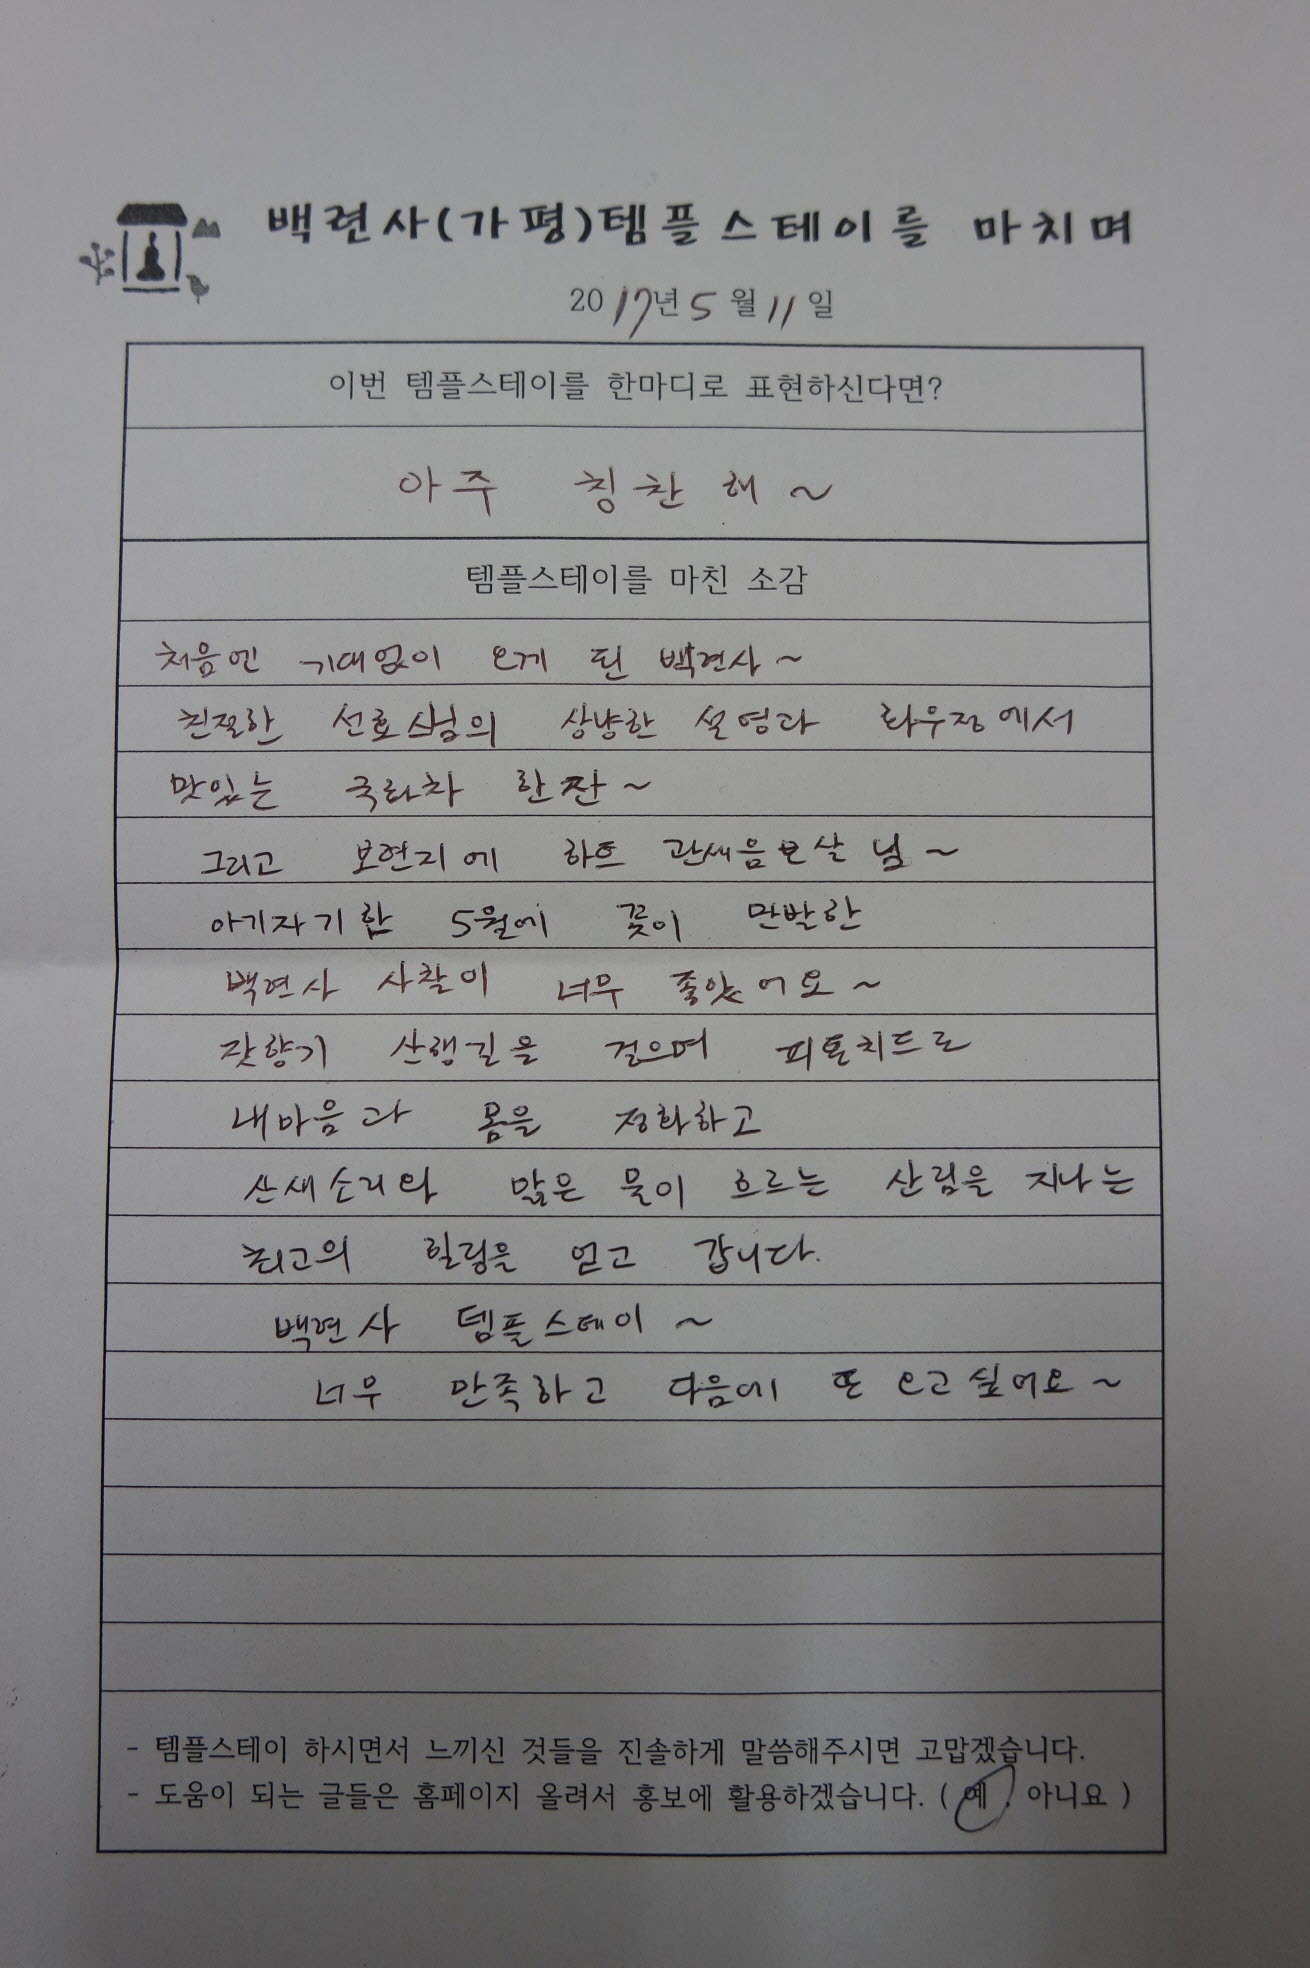 백련사(가평)템플스테이를 마치며
2017년 5월 11일
이번 템플스테이를 한마디로 표현하신다면?
아주 칭찬해~
템플스테이를 마친 소감
처음엔 기대없이 오게 된 백련사~
친절한 선효스님의 상냥한 설명과 타우정에서
맛있는 국화차 한잔~
그리고 보현지에 하트 관세음보살님~
아기자기함 5월에 꽃이 만발한
백련사 사찰이 너무 좋았어요~
잣향기 산행길을 걸으며 피톤치드로
내마음과 몸을 정화하고
산새소리와 맑은 물이 흐르는 산림을 지나는
최고의 힐링을 얻고 갑니다.
백련사 템플스테이~
너무 만족하고 다음에 또 오고싶어요~
- 템플스테이 하시면서 느끼신 것들을 진솔하게 말씀해주시면 고맙겠습니다.
- 도움이 되는 글들은 홈페이지 올려서 홍보에 활용하겠습니다. ( 예 . 아니요 )